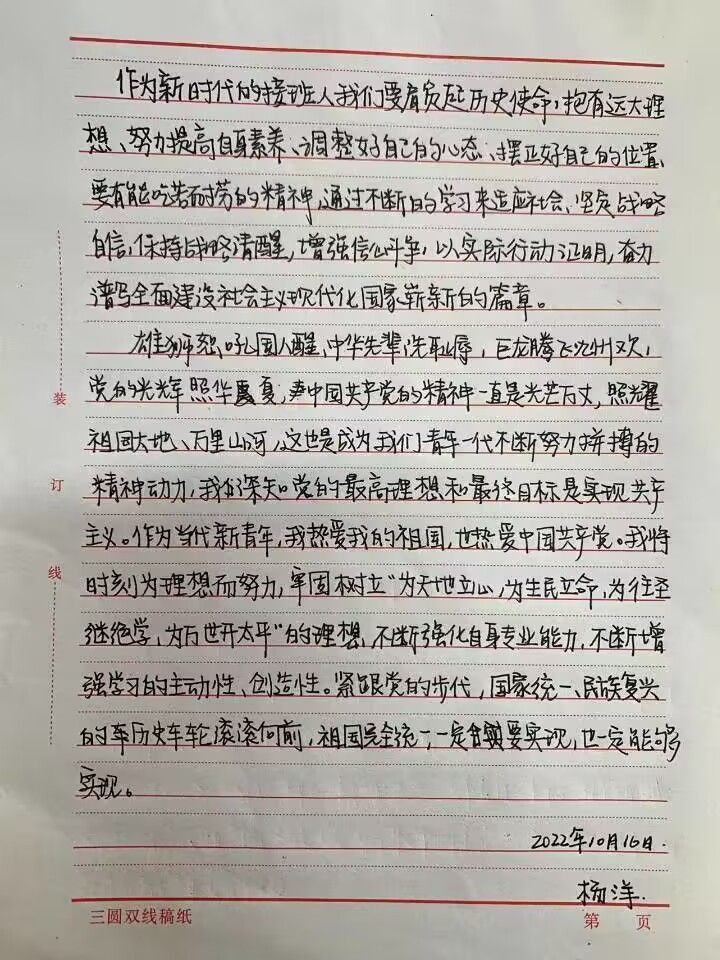 作为新时代的接班人我们要肩负起历史使命，抱有远大理
想、努力提高自身素养、调整好自己的心态、摆正好自己的位置，
要有能吃苦而耐劳的精神，通过不断的学习来适应社会、坚定战略
自信，保持战略清醒，增强信心斗争，以实际行动证明，奋力
谱写全面建设社会主义现代化国家崭新的篇章。
雄狮怒吼国人醒、中华先辈洗耻辱，巨龙腾飞九州欢，
党的光辉照华夏；中国共产党的精神一直是光芒万丈，照耀
祖国大地、万里山河，这也是成为我们青年一代不断努力拼搏的
精神动力，我们深知党的最高理想和最终目标是实现共产
主义。作为当代新青年，我热爱我的祖国，也热爱中国共产党。我将
时刻为理想而努力，牢固树立“为天地立心，为生民立命，为往圣
继绝学，为万世开太平”的理想，不断强化自身专业能力，不断增
强学习的主动性、创造性。紧跟党的步代，国家统一、民族复兴
的车历史车轮滚滚向前，祖国完全统一，一定要实现，也一定能够
实现。
2022年10月16日.
杨洋.
装
订
线
三圆双线稿纸
第 页